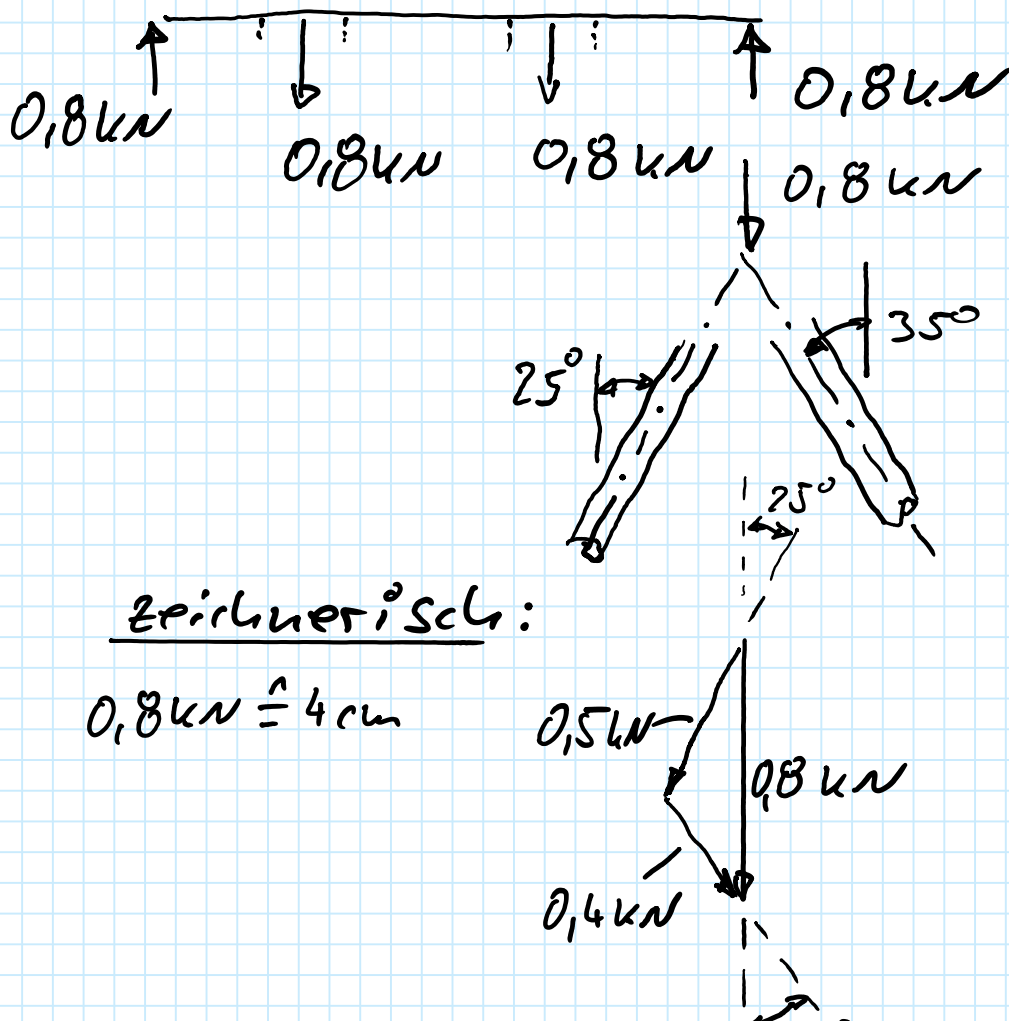 0,8 kN
0,8 kN
0,8 kN
0,8 kN
0,8 kN
35°
25°
25°
zeichnerisch:
0,8 kN ≙ 4 cm
0,5 kN
0,8 kN
0,4 kN